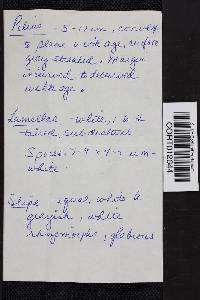 Pileus - 5-12 cm, convex
to plane with age, surface
gray streaked. Margin
incurved to decurved
with age.
Lamellae - white, 1 to 2
tiered, subdistant
Spores - 7-9 x 4-5 um -
white.
Stipe equal, white to
grayish, white
rhizomorphs, glabrous
COHT012544